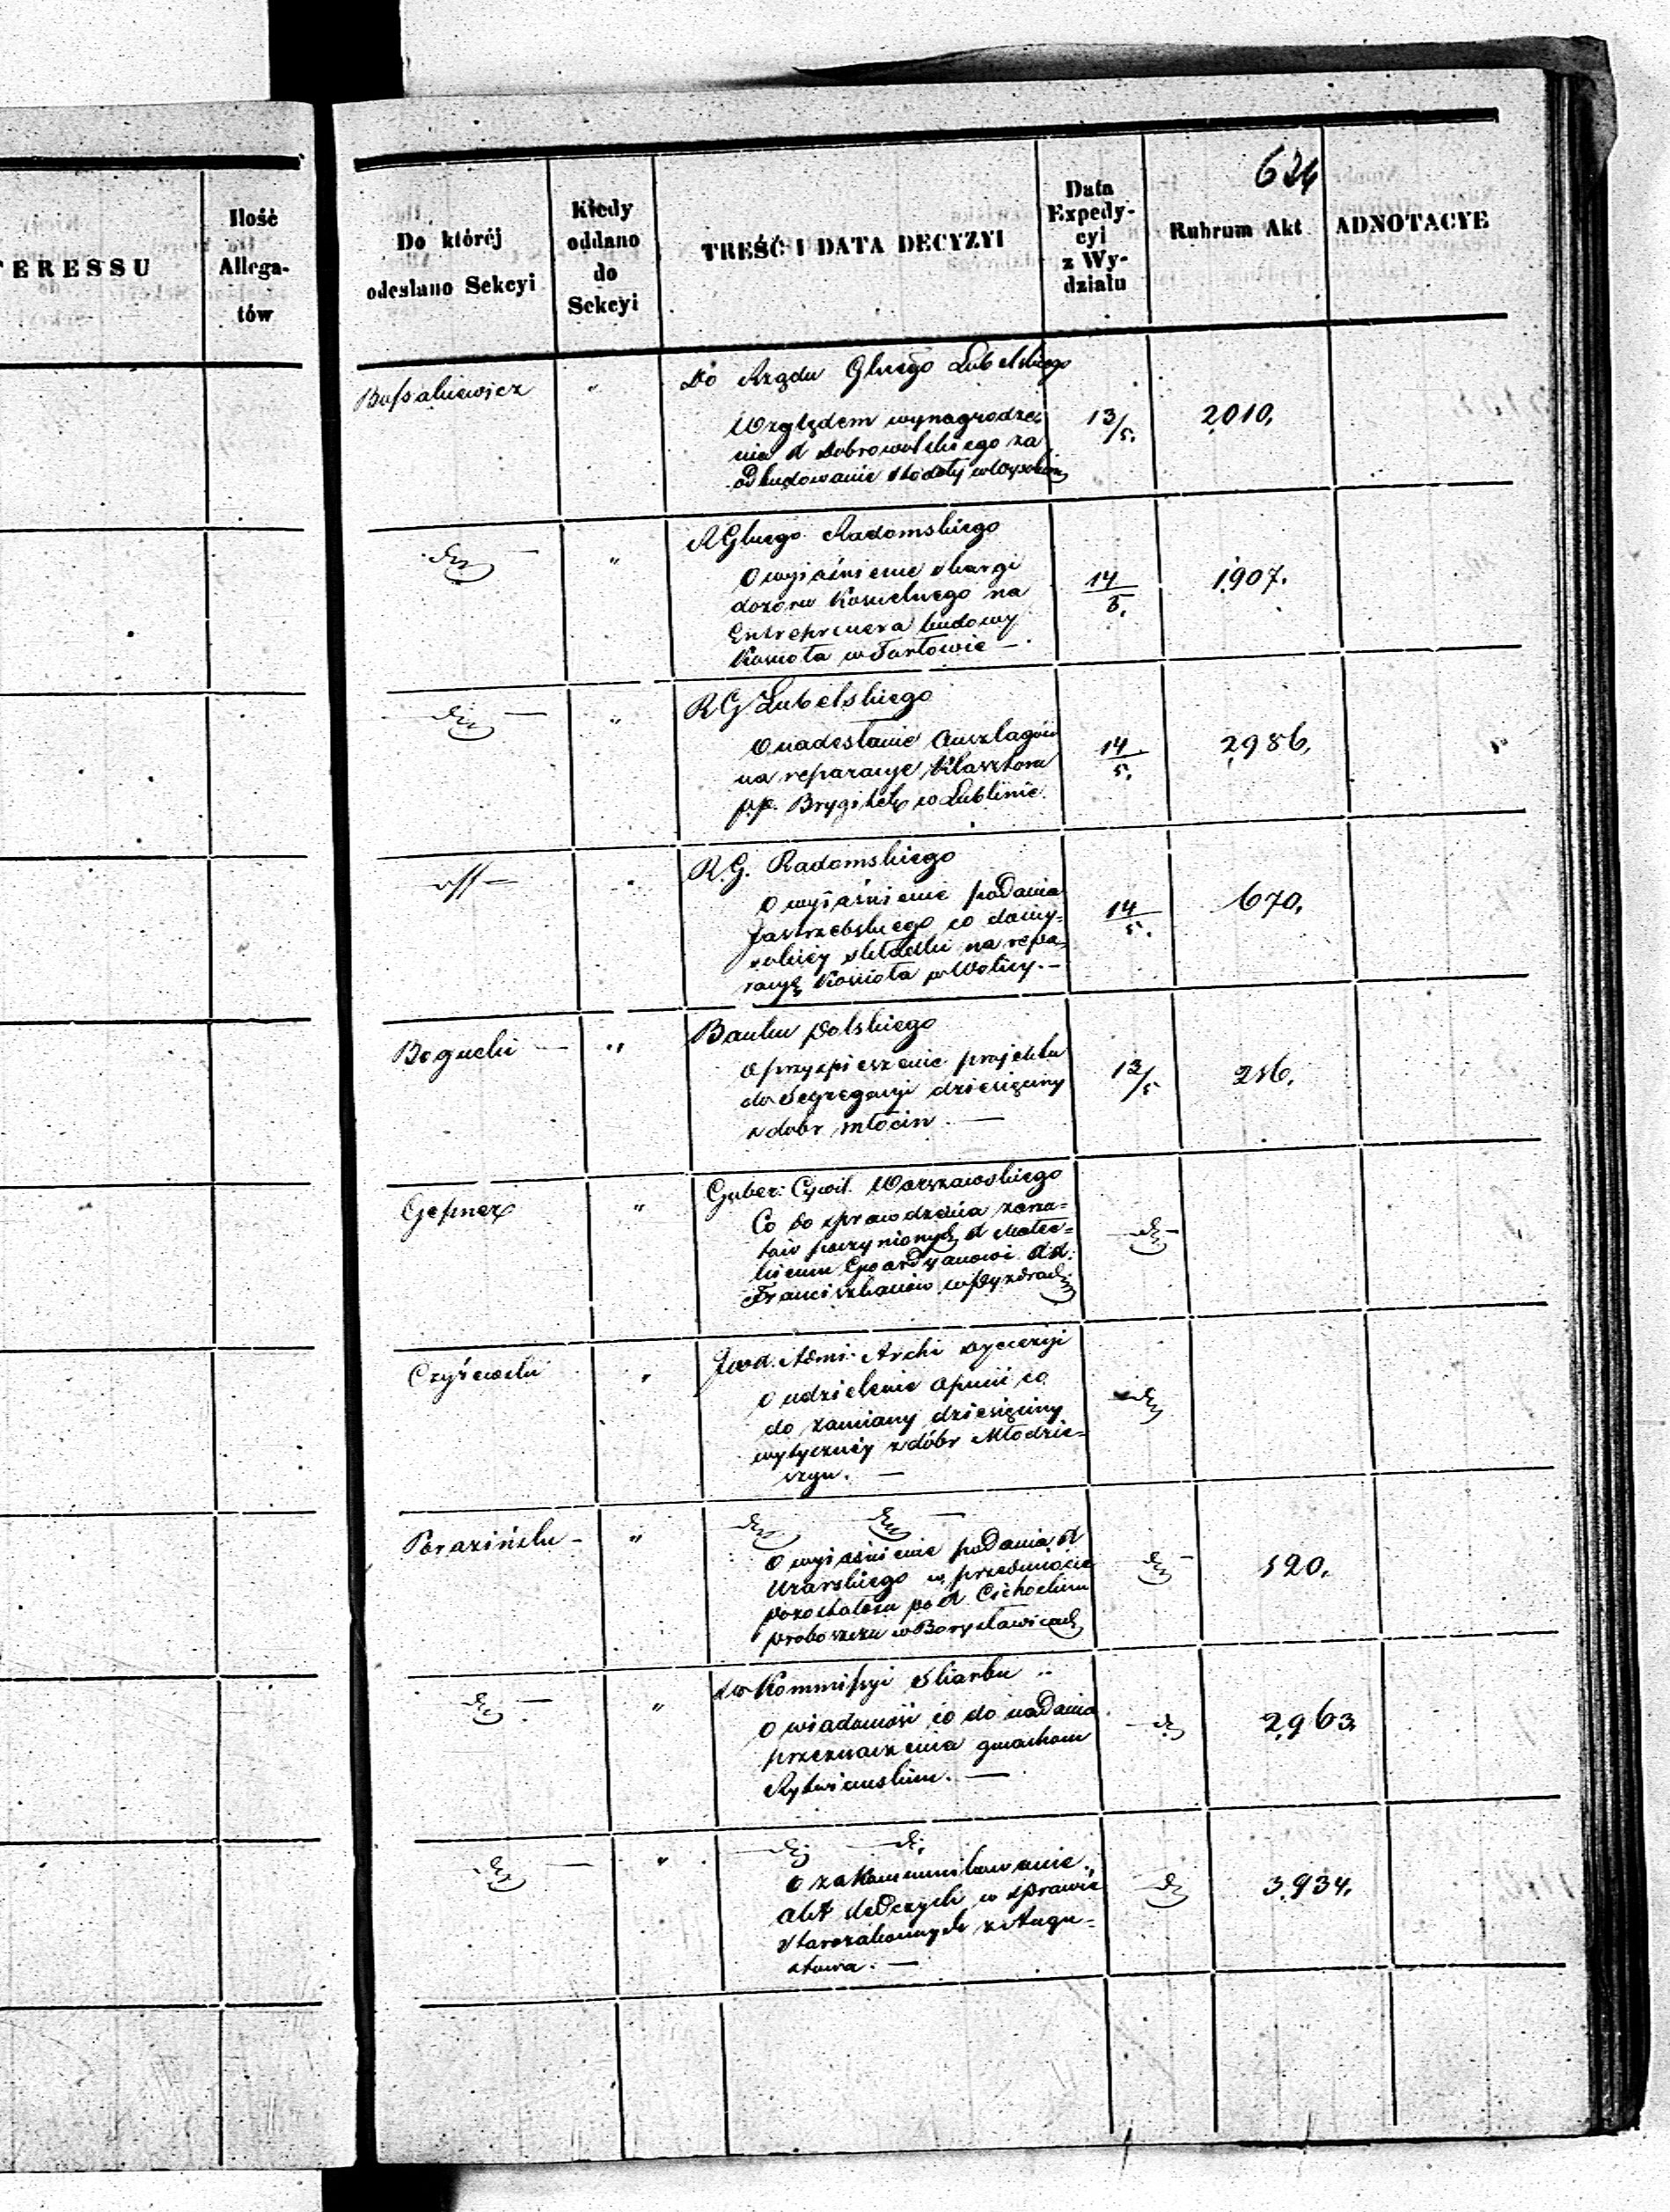 TERESSU
Ilość
Allega-
tów
624
Do której
odesłano Sekcyi
Kiedy
oddano
do
Sekcyi
TREŚĆ I DATA DECYZYI
Data
Expedy-
cyi
z Wy-
działu
Rubrum Akt
ADNOTACYE
"
Do Rządu Głnego Lubelskiego
Względem wynagrodze-
nia Dobrowolskiego za
odbudowanie stodoły
13/5.
2010.
"
RGłnego Radomskiego
O wyjaśnienie skargi
dozoru Kościelnego na
Entreprenera budowy
Kościoła w Tarłowie —
14/5.
1907.
"
RG Lubelskiego
O nadesłanie Anszlagów
na reparacye Klasztoru
pp. Brygitek w Lublinie.
14/5.
2986.
"
R.G. Radomskiego
O wyjaśnienie podania
Jastrzebskiego co do
składki na repa-
racyę Kościoła w Wolicy. —
14/5.
670.
Bogucki —
"
Banku Polskiego
O przyspieszenie projektu
do Segregacyi dziesięciny
z dobr Młocin. —
13/5
216.
Gepner
"
Guber: Cywil. Warszawskiego
Co do sprawdzenia zarzu-
tów poczynionych X Małec-
kiemu Gwardyanowi XX.
Franciszkanów w Pyzdrach
Czyżewski
"
Admi. Archi Dyecezyi
O udzielenie opinii co
do zamiany dziesięciny
wytycznéj z dóbr Młodzie-
szyn. —
Paraziński —
"
O wyjaśnienie podania X
w przedmiocie
pozostałości po X Cichockim
proboszczu w Borysławicach
520.
"
do Kommissyi Skarbu
O wiadomość co do nadania
przeznaczenia gmachom
Rytwianskim. —
2963.
"
O zakommunikowanie
akt śledczych w sprawie
Starozakonnych z Augu-
stowa. —
3934.